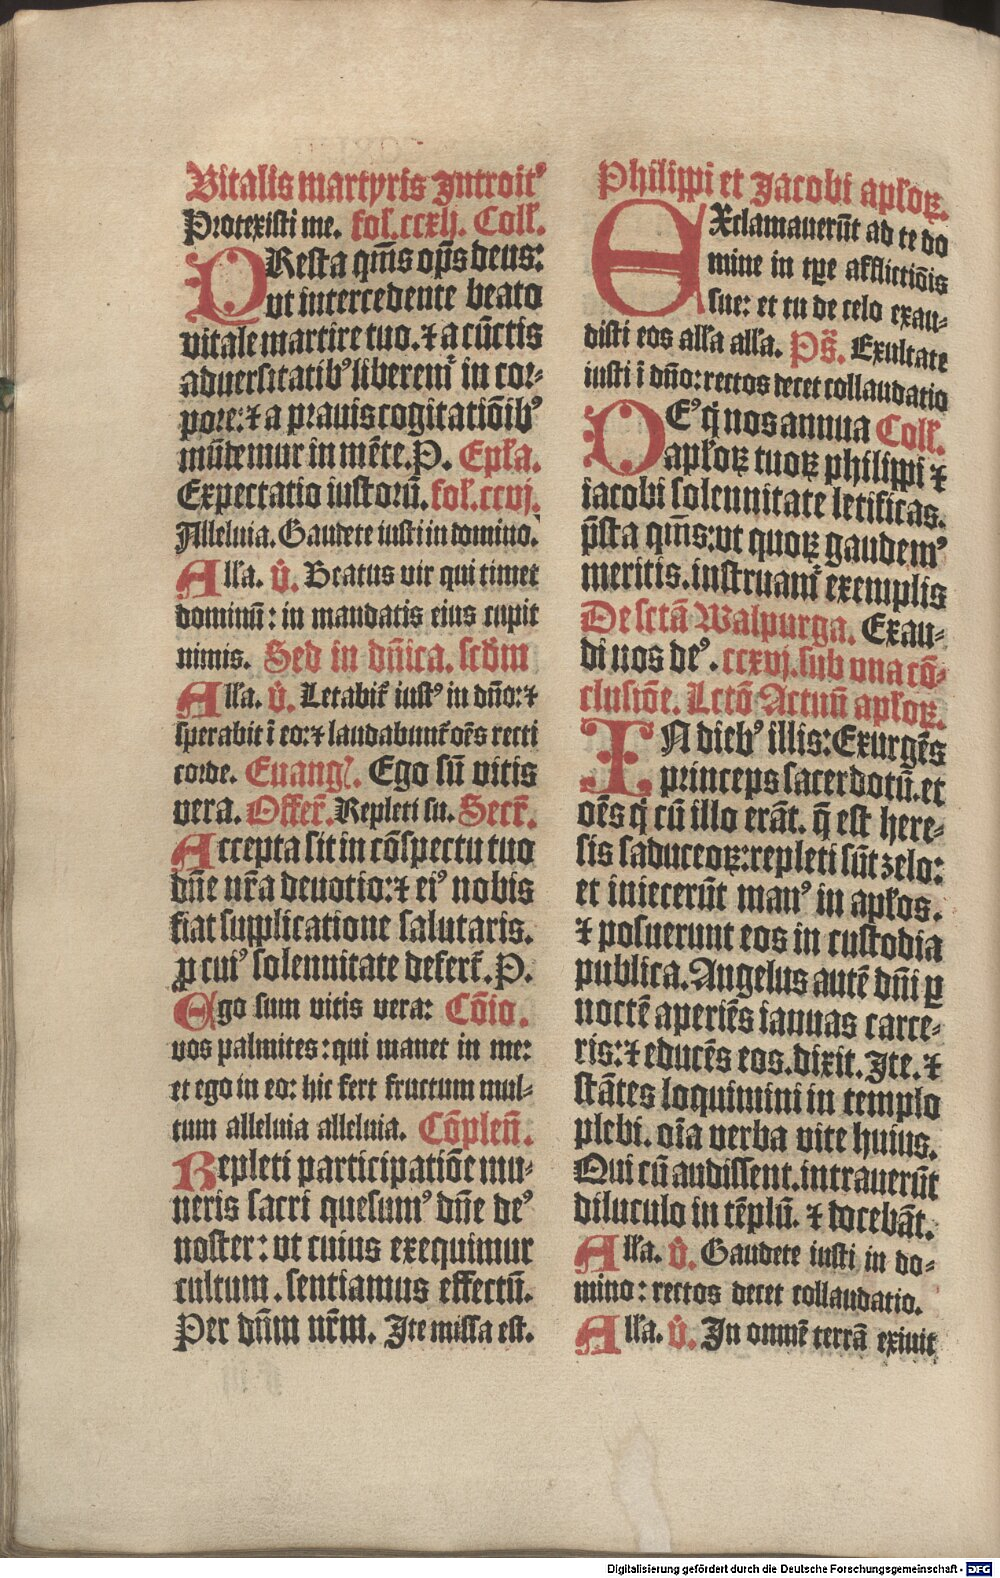 Vitalis martyris Introitꝰ
Protexisti me. fol. ccxlj. Coll.
PResta q̄m̄s op̄s deus:
vt intercedente beato
vitale martire tuo. ⁊ a cūctis
aduersitatibꝰ liberemꝰ in cor⸗
pore: ⁊ a prauis cogitatiōibꝰ
mūdemur in mēte. P. Epl̄a.
Expectatio iustorū. fol. ccvj.
Alleluia. Gaudete iusti in domino.
All̄a. v̄. Beatus vir qui timet
dominū: in mandatis eius cupit
nimis. Sed in dn̄ica. scd̄m
All̄a. v̄. Letabit᷑ iustꝰ in dn̄o: ⁊
sperabit ī eo: ⁊ laudabunt᷑ oēs recti
corde. Euangl̄. Ego sū vitis
vera. Offer̄. Repleti su. Secr̄.
Accepta sit in cōspectu tuo
dn̄e nr̄a deuotio: ⁊ eiꝰ nobis
fiat supplicatione salutaris.
ꝓ cuiꝰ solennitate defert᷑. P.
Ego sum vitis vera: Cōio.
vos palmites: qui manet in me:
et ego in eo: hic fert fructum mul⸗
tum alleluia alleluia. Cōplen̄.
Repleti participatiōe mu⸗
neris sacri quesumꝰ dn̄e deꝰ
noster: vt cuius exequimur
cultum. sentiamus effectū.
Per dn̄m nr̄m. Ite missa est.
Philippi et Jacobi apl̄oꝝ.
EXclamauerūt ad te do
mine in tꝑe afflictiōis
sue: et tu de celo exau⸗
disti eos all̄a all̄a. Ps̄. Exultate
iusti ī dn̄o: rectos decet collaudatio
DEꝰ q̄ nos annua Coll.
apl̄oꝝ tuoꝝ philippi ⁊
iacobi solennitate letificas.
p̄sta q̄m̄s: vt quoꝝ gaudemꝰ
meritis. instruamꝰ exemplis
De sctā Walpurga. Exau⸗
di nos deꝰ. ccxvj. sub vna cō⸗
clusiōe. Lctō Actuū apl̄oꝝ.
IN diebꝰ illis: Exurgēs
princeps sacerdotū. et
oēs q̄ cū illo erāt. q̄ est here⸗
sis saduceoꝝ: repleti sūt zelo:
et iniecerūt manꝰ in apl̄os.
⁊ posuerunt eos in custodia
publica. Angelus autē dn̄i ꝑ
noctē aperiēs ianuas carce⸗
ris: ⁊ educēs eos. dixit. Ite. ⁊
stātes loquimini in templo
plebi. oīa verba vite huius.
Qui cū audissent. intrauerūt
diluculo in tēplū. ⁊ docebāt.
All̄a. v̄. Gaudete iusti in do⸗
mino: rectos decet collaudatio.
All̄a. v̄. In omnē terrā exiuit
Digitalisierung gefördert durch die Deutsche Forschungsgemeinschaft - DFG